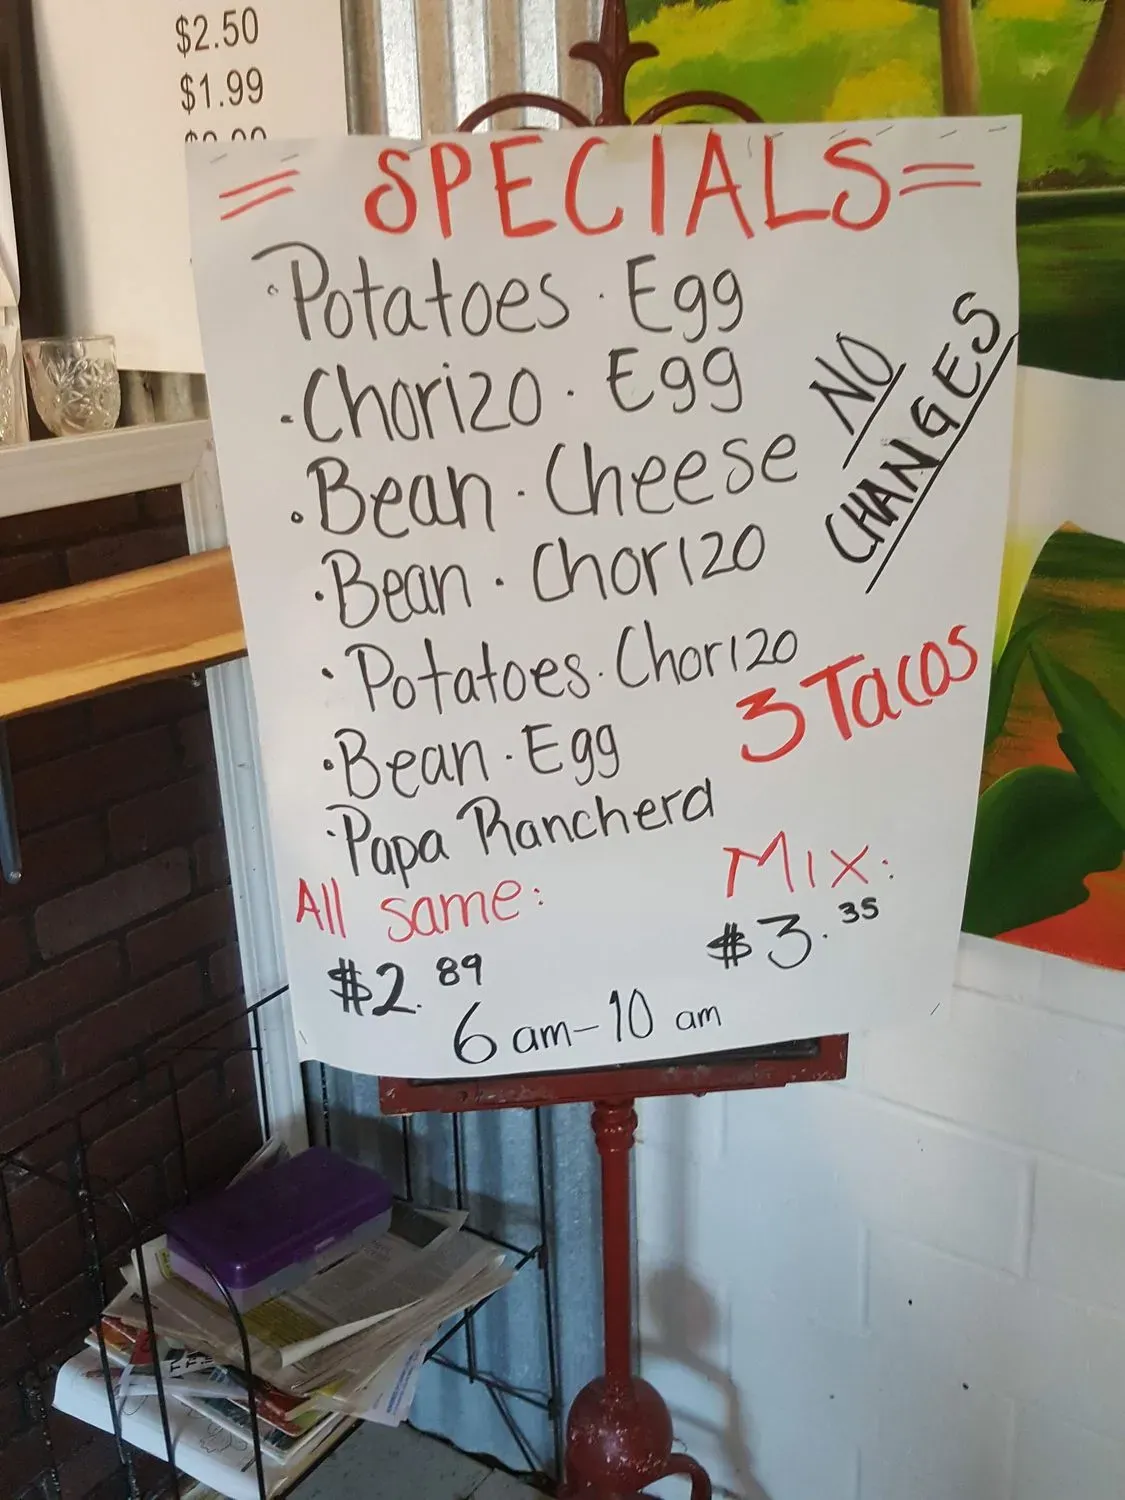 $2.50
$1.99
= SPECIALS =
· Potatoes · Egg
· Chorizo · Egg
· Bean · Cheese
· Bean · Chorizo
· Potatoes · Chorizo
· Bean · Egg
· Papa Ranchera
NO
CHANGES
3 Tacos
All same:
$2.89
Mix:
$3.35
6 am - 10 am